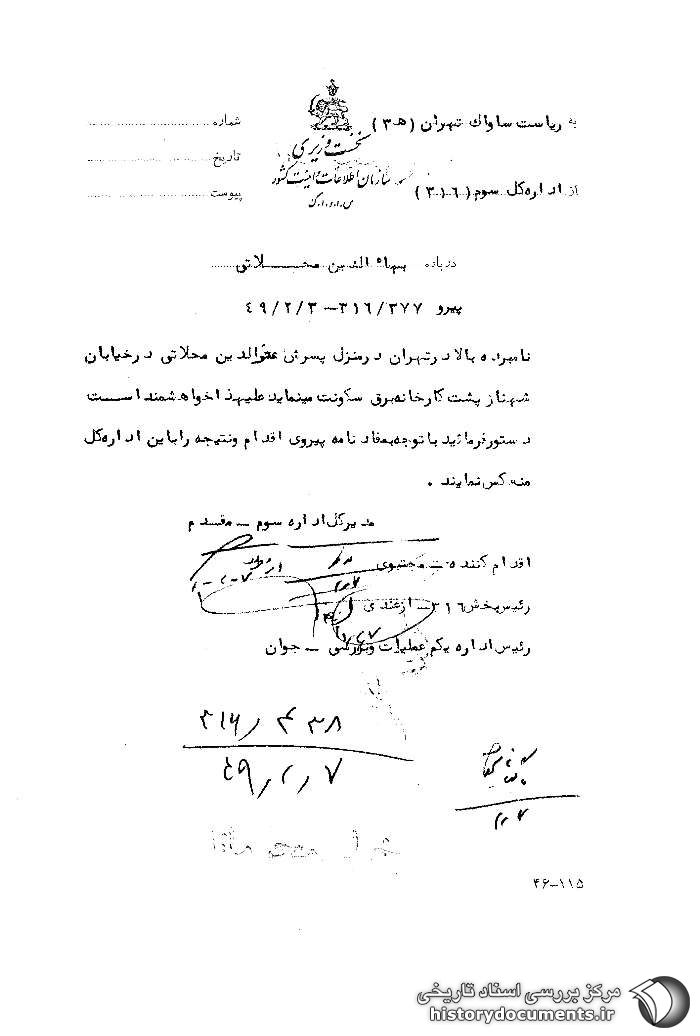 به ریاست ساواک تهران (ه‍ ۳)
از اداره کل سوم (۳۱۶)
نخست وزیری
سازمان اطلاعات و امنیت کشور
س.ا.و.ا.ک
شماره
تاریخ
پیوست
درباره بهاء الدین محلاتی
پیرو ۳۱۶/۳۷۷ – ۴۹/۲/۳
نامبرده بالا در تهران در منزل پسرش الدین محلاتی در خیابان
شهناز پشت کارخانه برق سکونت مینماید علیهذا خواهشمند است
دستور فرمائید با توجه بمفاد نامه پیروی اقدام و نتیجه را باین اداره کل
منعکس نمایند .
مدیرکل اداره سوم – مقدم
اقدام کننده – مجتبوی
رئیس بخش ۳۱۶ – ازغندی
رئیس اداره یکم عملیات و بررسی – جوان
۳۱۶/۴۳۸
۴۹/۲/۷
۴۶–۱۱۵
مرکز بررسی اسناد تاریخی
historydocuments.ir